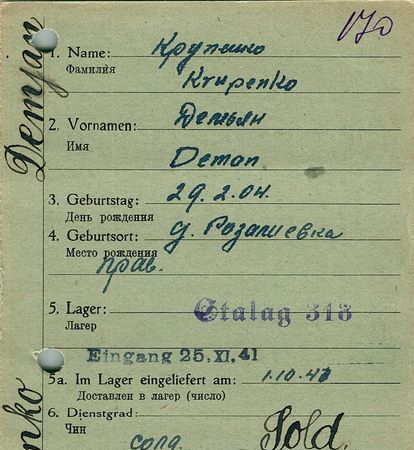 170
1. Name: Крупенко
Фамилия
Krupenko
2. Vornamen: Демьян
Имя
Deman
3. Geburtstag: 29.2.04.
День рождения
4. Geburtsort: д. Розалиевка
Место рождения
прав.
5. Lager: Stalag 318
Лагер
Eingang 25.XI.41
5a. Im Lager eingeliefert am: 1.10.43
Доставлен в лагер (число)
6. Dienstgrad: Sold.
Чин солд.
Demjan
nko